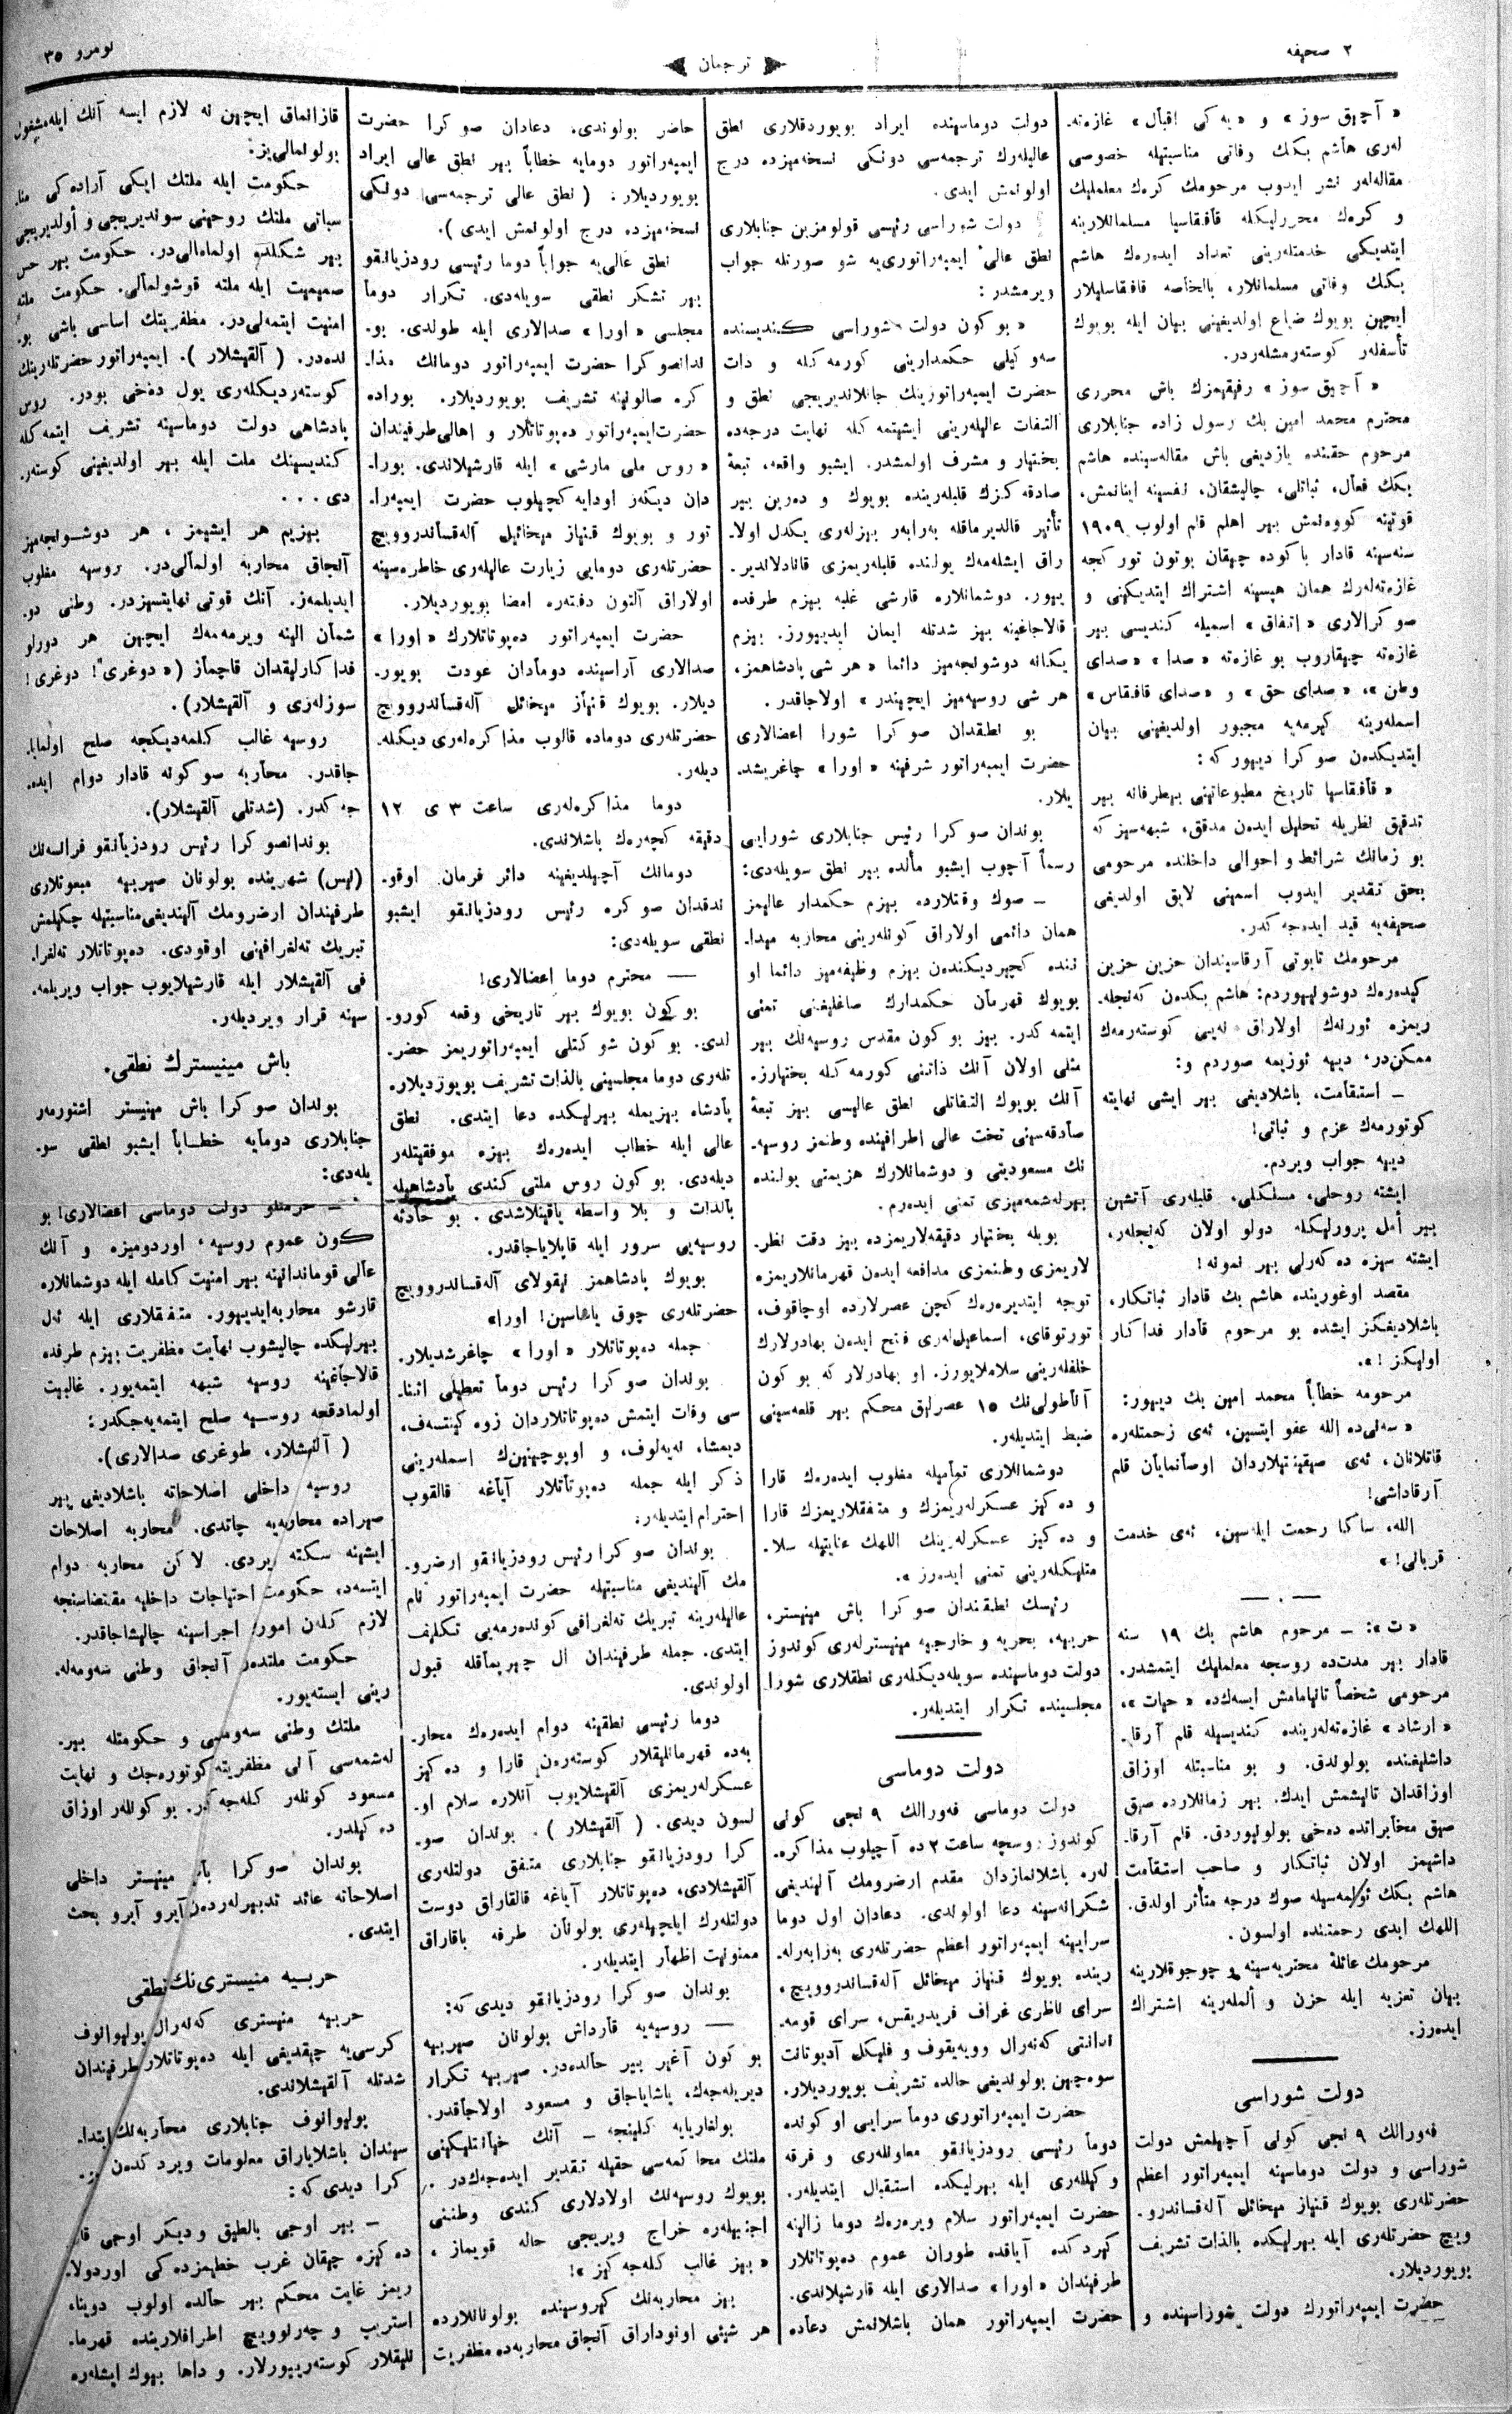 ٢ صحيفه
ترجمان
نومرو ٣٥
« آچيق سوز » و « يه كی اقبال » غازه‌ته‌-
لەری هاشم بكك وفاتی مناسبتيله خصوصی
مقاله‌لەر نشر ايدوب مرحومك كرەك معلملیك
و كرەك محررليكله قافقاسيا مسلمانلارينه
ايتديكی خدمتلەرينی تعداد ايدەرەك هاشم
بكك وفاتی مسلمانلار، بالخاصه قافقاسليلار
ايچين بويوك ضياع اولديغينی بيان ايله بويوك
تأسفلەر كوستەرمشلەردر.
« آچيق سوز » رفيقيمزك باش محرری
محترم محمد امين بك رسول زاده جنابلاری
مرحوم حقنده يازديغی باش مقاله‌سينده هاشم
بكك فعال، ثباتلی، چاليشقان، نفسينه اينانمش،
قوتينه كووه‌نمش بير اهلم قلم اولوب ١٩٠٩
سنه‌سينه قادار باكوده چيقان بوتون تور كجه
غازه‌ته‌لەرك همان هپسينه اشتراك ايتديكينی و
صو كرالاری « اتفاق » اسميله كنديسی بير
غازه‌ته چيقاروب بو غازه‌ته « صدا » « صدای
وطن »، « صدای حق » و « صدای قافقاس »
اسملەرينه كيرمه‌يه مجبور اولديغينی بيان
ايتديكدەن صو كرا دييور كه :
« قافقاسيا تاريخ مطبوعاتينی بيطرفانه بير
تدقيق نظريله تحليل ايدەن مدقق، شبهه‌سيز كه
بو زمانك شرائط و احوالی داخلنده مرحومی
بحق تقدير ايدوب اسمينی لايق اولديغی
صحيفه‌يه قيد ايده‌جه كدر.
مرحومك تابوتی آرقاسيندان حزين حزين
كيدەرەك دوشونييوردم: هاشم بكدەن كه‌نجله‌-
ريمزه ئورنەك اولاراق نه‌يی كوستەرمەك
ممكن‌در، دييه ئوزيمه صوردم و:
ـ استقامت، باشلاديغی بير ايشی نهايته
كوتورمەك عزم و ثباتی!
دييه جواب ويردم.
ايشته روحلی، مسلكلی، قلبلەری آتشين
بير أمل پرورليكله دولو اولان كه‌نجلەر،
ايشته سيزه ده كەرلی بير نمونه!
مقصد اوغورينده هاشم بك قادار ثباتكار،
باشلاديغكز ايشده بو مرحوم قادار فداكار
اوليكز ! ».
مرحومه خطاباً محمد امين بك دييور:
« سەنی‌ده الله عفو ايتسين، ئه‌ی زحمتلەره
قاتلانان، ئه‌ی صيقينتيلاردان اوصانمايان قلم
آرقاداشی!
الله، ساكا رحمت ايله‌سين، ئه‌ی خدمت
قربانی! »
« ت »: ـ مرحوم هاشم بك ١٩ سنه
قادار بير مدت‌ده روسجه معلمليك ايتمشدر.
مرحومی شخصاً تانيمامش ايسه‌ك‌ده « حيات »،
« ارشاد » غازه‌ته‌لەرينده كنديسيله قلم آرقا-
داشليغنده بولوندق. و بو مناسبتله اوزاق
اوزاقدان تانيشمش ايدك. بير زمانلارده صيق
صيق مخابراتده ده‌خی بولونييوردق. قلم آرقا-
داشيمز اولان ثباتكار و صاحب استقامت
هاشم بكك ئولمه‌سيله صوك درجه متأثر اولدق.
اللهك ابدی رحمتنده اولسون.
مرحومك عائلۀ محتريه‌سينه و چوجوقلارينه
بيان تعزيه ايله حزن و ألملەرينه اشتراك
ايدەرز.
دولت شوراسی
فه‌ورالك ٩ نجی كونی آچيلمش دولت
شوراسی و دولت دوماسينه ايمپەراتور اعظم
حضرتلەری بويوك قنياز ميخائل آله‌قساندرو-
ويچ حضرتلەری ايله بيرليكده بالذات تشريف
بويورديلار.
حضرت ايمپەراتورك دولت شوراسينده و
دولت دوماسينده ايراد بويوردقلاری نطق
عاليلەرك ترجمه‌سی دونكی نسخه‌ميزده درج
اولونمش ايدی.
دولت شوراسی رئيسی قولومزين جنابلاری
نطق عالئ ايمپەراتوری‌يه شو صورتله جواب
ويرمشدر :
« بو كون دولت شوراسی كنديسنده
سه‌و كيلی حكمدارينی كورمه كله و ذات
حضرت ايمپەراتورينك جانلانديريجی نطق و
التفات عاليلەرينی ايشيتمه كله نهايت درجه‌ده
بختيار و مشرف اولمشدر. ايشبو واقعه، تبعۀ
صادقه كزك قلبلەرينده بويوك و ده‌رين بير
تأثير قالديرماقله بەرابەر بيزلەری يكدل اولا-
راق ايشله‌مەك يولنده قلبلەريمزی قانادلانديـر-
ييور. دوشمانلاره قارشی غلبه بيزم طرفده
قالاجاغينه بيز شدتله ايمان ايدييورز. بيزم
يكانه دوشونجه‌ميز دائما « هر شی پادشاهمز،
هر شی روسيه‌ميز ايچيندر » اولاجاقدر.
بو نطقدان صو كرا شورا اعضالاری
حضرت ايمپەراتور شرفينه « اورا » چاغريشد-
يلار.
بوندان صو كرا رئيس جنابلاری شورايی
رسماً آچوب ايشبو مألده بير نطق سويله‌دی:
ـ صوك وقتلارده بيزم حكمدار عاليمز
همان دائمی اولاراق كونلەرينی محاربه ميدا-
ننده كچيرديكندەن بيزم وظيفه‌ميز دائما او
بويوك قهرمان حكمدارك صاغليغنی تمنی
ايتمه كدر. بيز بو كون مقدس روسيه‌نك بير
مثلی اولان آنك ذاتنی كورمه كله بختيارز.
آنك بويوك التفاتلی نطق عاليسی بيز تبعۀ
صادقه‌سينی تخت عالی اطرافينده وطنمز روسيه-
نك مسعوديتی و دوشمانلارك هزيمتی يولنده
بيرله‌شمه‌ميزی تمنی ايدەرم.
بويله بختيار دقيقه‌لاريمزده بيز دقت نظر-
لاريمزی وطنمزی مدافعه ايدەن قهرمانلاريمزه
توجه ايتديرەرەك كچن عصرلارده اوچاقوف،
تورتوقای، اسماعيل‌لەری فتح ايدەن بهادرلارك
خلفلەرينی سلاملايورز. او بهادرلار كه بو كون
آناطولی‌نك ١٥ عصرليق محكم بير قلعه‌سينی
ضبط ايتديلەر.
دوشمانلاری تماميله مغلوب ايدەرەك قارا
و ده كيز عسكرلەريمزك و متفقلاريمزك قارا
و ده كيز عسكرلەرينك اللهك عنايتيله سلا-
متليكلەرينی تمنی ايدەرز ».
رئيسك نطقندان صو كرا باش مينيستر،
حربيه، بحريه و خارجيه مينيسترلەری كوندوز
دولت دوماسينده سويله‌ديكلەری نطقلاری شورا
مجلسينده تكرار ايتديلەر.
دولت دوماسی
دولت دوماسی فه‌ورالك ٩ نجی كونی
كوندوز روسچه ساعت ٢ ده آچيلوب مذاكره-
لەره باشلانمازدان مقدم ارضرومك آلينديغی
شكرانه‌سينه دعا اولوندی. دعادان اول دوما
سرايينه ايمپەراتور اعظم حضرتلەری بەرابەرله-
رينده بويوك قنياز ميخائل آله‌قساندروويچ،
سرای ناظری غراف فريدريقس، سرای قومه-
ندانتی كه‌نەرال وويه‌يقوف و فليكل آديوتانت
سوه‌چين بولونديغی حالده تشريف بويورديلار.
حضرت ايمپەراتوری دوما سرايی او كونده
دوما رئيسی رودزيانقو معاونلەری و فرقه
و كيللەری ايله بيرليكده استقبال ايتديلەر.
حضرت ايمپەراتور سلام ويرەرەك دوما زالينه
كيرد كده آياقده طوران عموم ده‌پوتاتلار
طرفيندان « اورا » صدالاری ايله قارشيلاندی.
حضرت ايمپەراتور همان باشلانمش دعاده
حاضر بولوندی. دعادان صو كرا حضرت
ايمپەراتور دومايه خطاباً بير نطق عالی ايراد
بويورديلار. ( نطق عالی ترجمه‌سی دونكی
نسخه‌ميزده درج اولونمش ايدی ).
نطق عالی‌يه جواباً دوما رئيسی رودزيانقو
بير تشكر نطقی سويله‌دی. تكرار دوما
مجلسی « اورا » صدالاری ايله طولدی. بو-
ندانصو كرا حضرت ايمپەراتور دومانك مذا-
كره صالونينه تشريف بويورديلار. بوراده
حضرت‌ايمپەراتور ده‌پوتاتلار و اهالی‌طرفيندان
« روس ملی مارشی » ايله قارشيلاندی. بورا-
دان ديكەر اودايه كچيلوب حضرت ايمپەرا-
تور و بويوك قنياز ميخائيل آله‌قساندروويچ
حضرتلەری دومايی زيارت عاليلەری خاطره‌سينه
اولاراق آلتون دفتەره امضا بويورديلار.
حضرت ايمپەراتور ده‌پوتاتلارك « اورا »
صدالاری آراسينده دومادان عودت بويور-
ديلار. بويوك قنياز ميخائل آله‌قساندروويچ
حضرتلەری دوماده قالوب مذاكره‌لەری ديكله-
ديلەر.
دوما مذاكره‌لەری ساعت ٣ ی ١٢
دقيقه كچەرەك باشلاندی.
دومانك آچيلديغينه دائر فرمان اوقو-
ندقدان صو كره رئيس رودزيانقو ايشبو
نطقی سويله‌دی:
— محترم دوما اعضالاری!
بو كون بويوك بير تاريخی وقعه كورو-
لدی. بو كون شو كتلی ايمپەراتوريمز حضر-
تلەری دوما مجلسينی بالذات تشريف بويورديلار.
پادشاه بيزيمله بيرليكده دعا ايتدی. نطق
عالی ايله خطاب ايدەرەك بيزه موفقيتلەر
ديله‌دی. بو كون روس ملتی كندی پادشاهيله
بالذات و بلا واسطه ياقينلاشدی. بو حادثه
روسيه‌يی سرور ايله قاپلاياجاقدر.
بويوك پادشاهمز نيقولای آله‌قساندروويچ
حضرتلەری چوق ياشاسين! اورا»
جمله ده‌پوتاتلار « اورا » چاغرشديلار.
بوندان صو كرا رئيس دوما تعطيلی اثنا-
سی وفات ايتمش ده‌پوتاتلاردان زوه كينتسه‌ف،
ديمشا، له‌يه‌لوف، و اوبوچينين‌ك اسملەرينی
ذكر ايله جمله ده‌پوتاتلار آياغه قالقوب
احترام ايتديلەر.
بوندان صو كرا رئيس رودزيانقو ارضرو-
مك آلينديغی مناسبتيله حضرت ايمپەراتور نام
عاليلەرينه تبريك ته‌لغرافی كوندەرمه‌يی تكليف
ايتدی. جمله طرفيندان ال چيرپماقله قبول
اولوندی.
دوما رئيسی نطقينه دوام ايدەرەك محار-
به‌ده قهرمانليقلار كوستەرەن قارا و ده كيز
عسكرلەريمزی آلقيشلايوب آنلاره سلام او-
لسون ديدی. ( آلقيشلار ). بوندان صو-
كرا رودزيانقو جنابلاری متفق دولتلەری
آلقيشلادی، ده‌پوتاتلار آياغه قالقاراق دوست
دولتلەرك ايلچيلەری بولونان طرفه باقاراق
ممنونيت اظهار ايتديلەر.
بوندان صو كرا رودزيانقو ديدی كه:
— روسيه‌يه قارداش بولونان صيربيه
بو كون آغير بير حالده‌در. صيربيه تكرار
ديريله‌جەك، ياشاياجاق و مسعود اولاجاقدر.
بولغاريايه كلينجه ـ آنك خيانتليكينی
ملتك محاكمه‌سی حقيله تقدير ايده‌جەك‌در.
بويوك روسيه‌نك اولادلاری كندی وطننی
اجنبيلەره خراج ويريجی حاله قويماز،
« بيز غالب كله‌جه كيز »!
بيز محاربه‌نك كيروسينده بولونانلارده
هر شيئی اونوداراق آنجاق محاربه‌ده مظفريت
قازانماق ايچين نه لازم ايسه آنك ايله‌مشغول
بولونمالی‌يز.
حكومت ايله ملتك ايكی آراده‌كی منا-
سباتی ملتك روحينی سونديريجی و أولديريجی
بير شكلده اولمامالی‌در. حكومت بير حس
صميميت ايله ملته قوشولمالی. حكومت ملته
امنيت ايتمه‌لی‌در. مظفريتك اساسی باشی بو-
نده‌در. ( آلقيشلار ). ايمپەراتور حضرتلەرينك
كوستەرديكلەری يول ده‌خی بودر. روس
پادشاهی دولت دوماسينه تشريف ايتمه كله
كنديسينك ملت ايله بير اولديغينی كوستەر-
دی . . .
بيزيم هر ايشيمز ، هر دوشونجه‌ميز
آنجاق محاربه اولمالی‌در. روسيه مغلوب
ايديلمه‌ز. آنك قوتی نهايتسيزدر. وطنی دو-
شمان الينه ويرمه‌مەك ايچين هر دورلو
فداكارليقدان قاچماز (« دوغری! دوغری!
سوزلەری و آلقيشلار).
روسيه غالب كلمه‌ديكجه صلح اولمايا-
جاقدر. محاربه صو كونه قادار دوام ايده-
جه كدر. (شدتلی آلقيشلار).
بوندانصو كرا رئيس رودزيانقو فرانسه‌نك
(نيس) شهرينده بولونان صيربيه مبعوثلاری
طرفيندان ارضرومك آلينديغی‌مناسبتيله چكيلمش
تبريك ته‌لغرافينی اوقودی. ده‌پوتاتلار ته‌لغرا-
فی آلقيشلار ايله قارشيلايوب جواب ويريلمه-
سينه قرار ويرديلەر.
باش مينيسترك نطقی.
بوندان صو كرا باش مينيستر اشتورمەر
جنابلاری دومايه خطاباً ايشبو نطقی سو-
يله‌دی:
ـ حرمتلو دولت دوماسی اعضالاری! بو
كون عموم روسيه، اوردوميزه و آنك
عالی قوماندانينه بير امنيت كامله ايله دوشمانلاره
قارشو محاربه‌ايدييور. متفقلاری ايله ئەل
بيرليكده چاليشوب نهايت مظفريت بيزم طرفده
قالاجاغينه روسيه شبهه ايتمه‌يور. غالبيت
اولمادقجه روسيه صلح ايتمه‌يه‌جكدر:
( آلقيشلار، طوغری صدالاری).
روسيه داخلی اصلاحاته باشلاديغی بير
صيراده محاربه‌يه چاتدی. محاربه اصلاحات
ايشينه سكته ويردی. لاكن محاربه دوام
ايتسه‌ده، حكومت احتياجات داخليه مقتضاسنجه
لازم كلەن امور اجراسينه چاليشاجاقدر.
حكومت ملتدەن آنجاق وطنی سه‌ومه‌له-
رينی ايسته‌يور.
ملتك وطنی سه‌ومسی و حكومتله بير-
له‌شمه‌سی آنی مظفريته كوتوره‌جك و نهايت
مسعود كونلەر كله‌جه كدر. بو كونلەر اوزاق
ده كيلدر.
بوندان صو كرا باش مينيستر داخلی
اصلاحاته عائد تدبيرلەردەن آيرو آيرو بحث
ايتدی.
حربيه منيستری‌نك نطقی
حربيه منيستری كه‌نەرال پوليوانوف
كرسی‌يه چيقديغی ايله ده‌پوتاتلار طرفيندان
شدتله آلقيشلاندی.
پوليوانوف جنابلاری محاربه‌نك ابتدا-
سيندان باشلاياراق معلومات ويرد كدەن صو-
كرا ديدی كه:
ـ بير اوجی بالطيق و ديكر اوجی قارا
ده كيزه چيقان غرب خطيمزده‌كی اوردولا-
ريمز غايت محكم بير حالده اولوب دوينا،
استريپ و چەرنوويچ اطرافلارينده قهرما-
نليقلار كوستەرييورلار. و داها بيوك ايشلەره